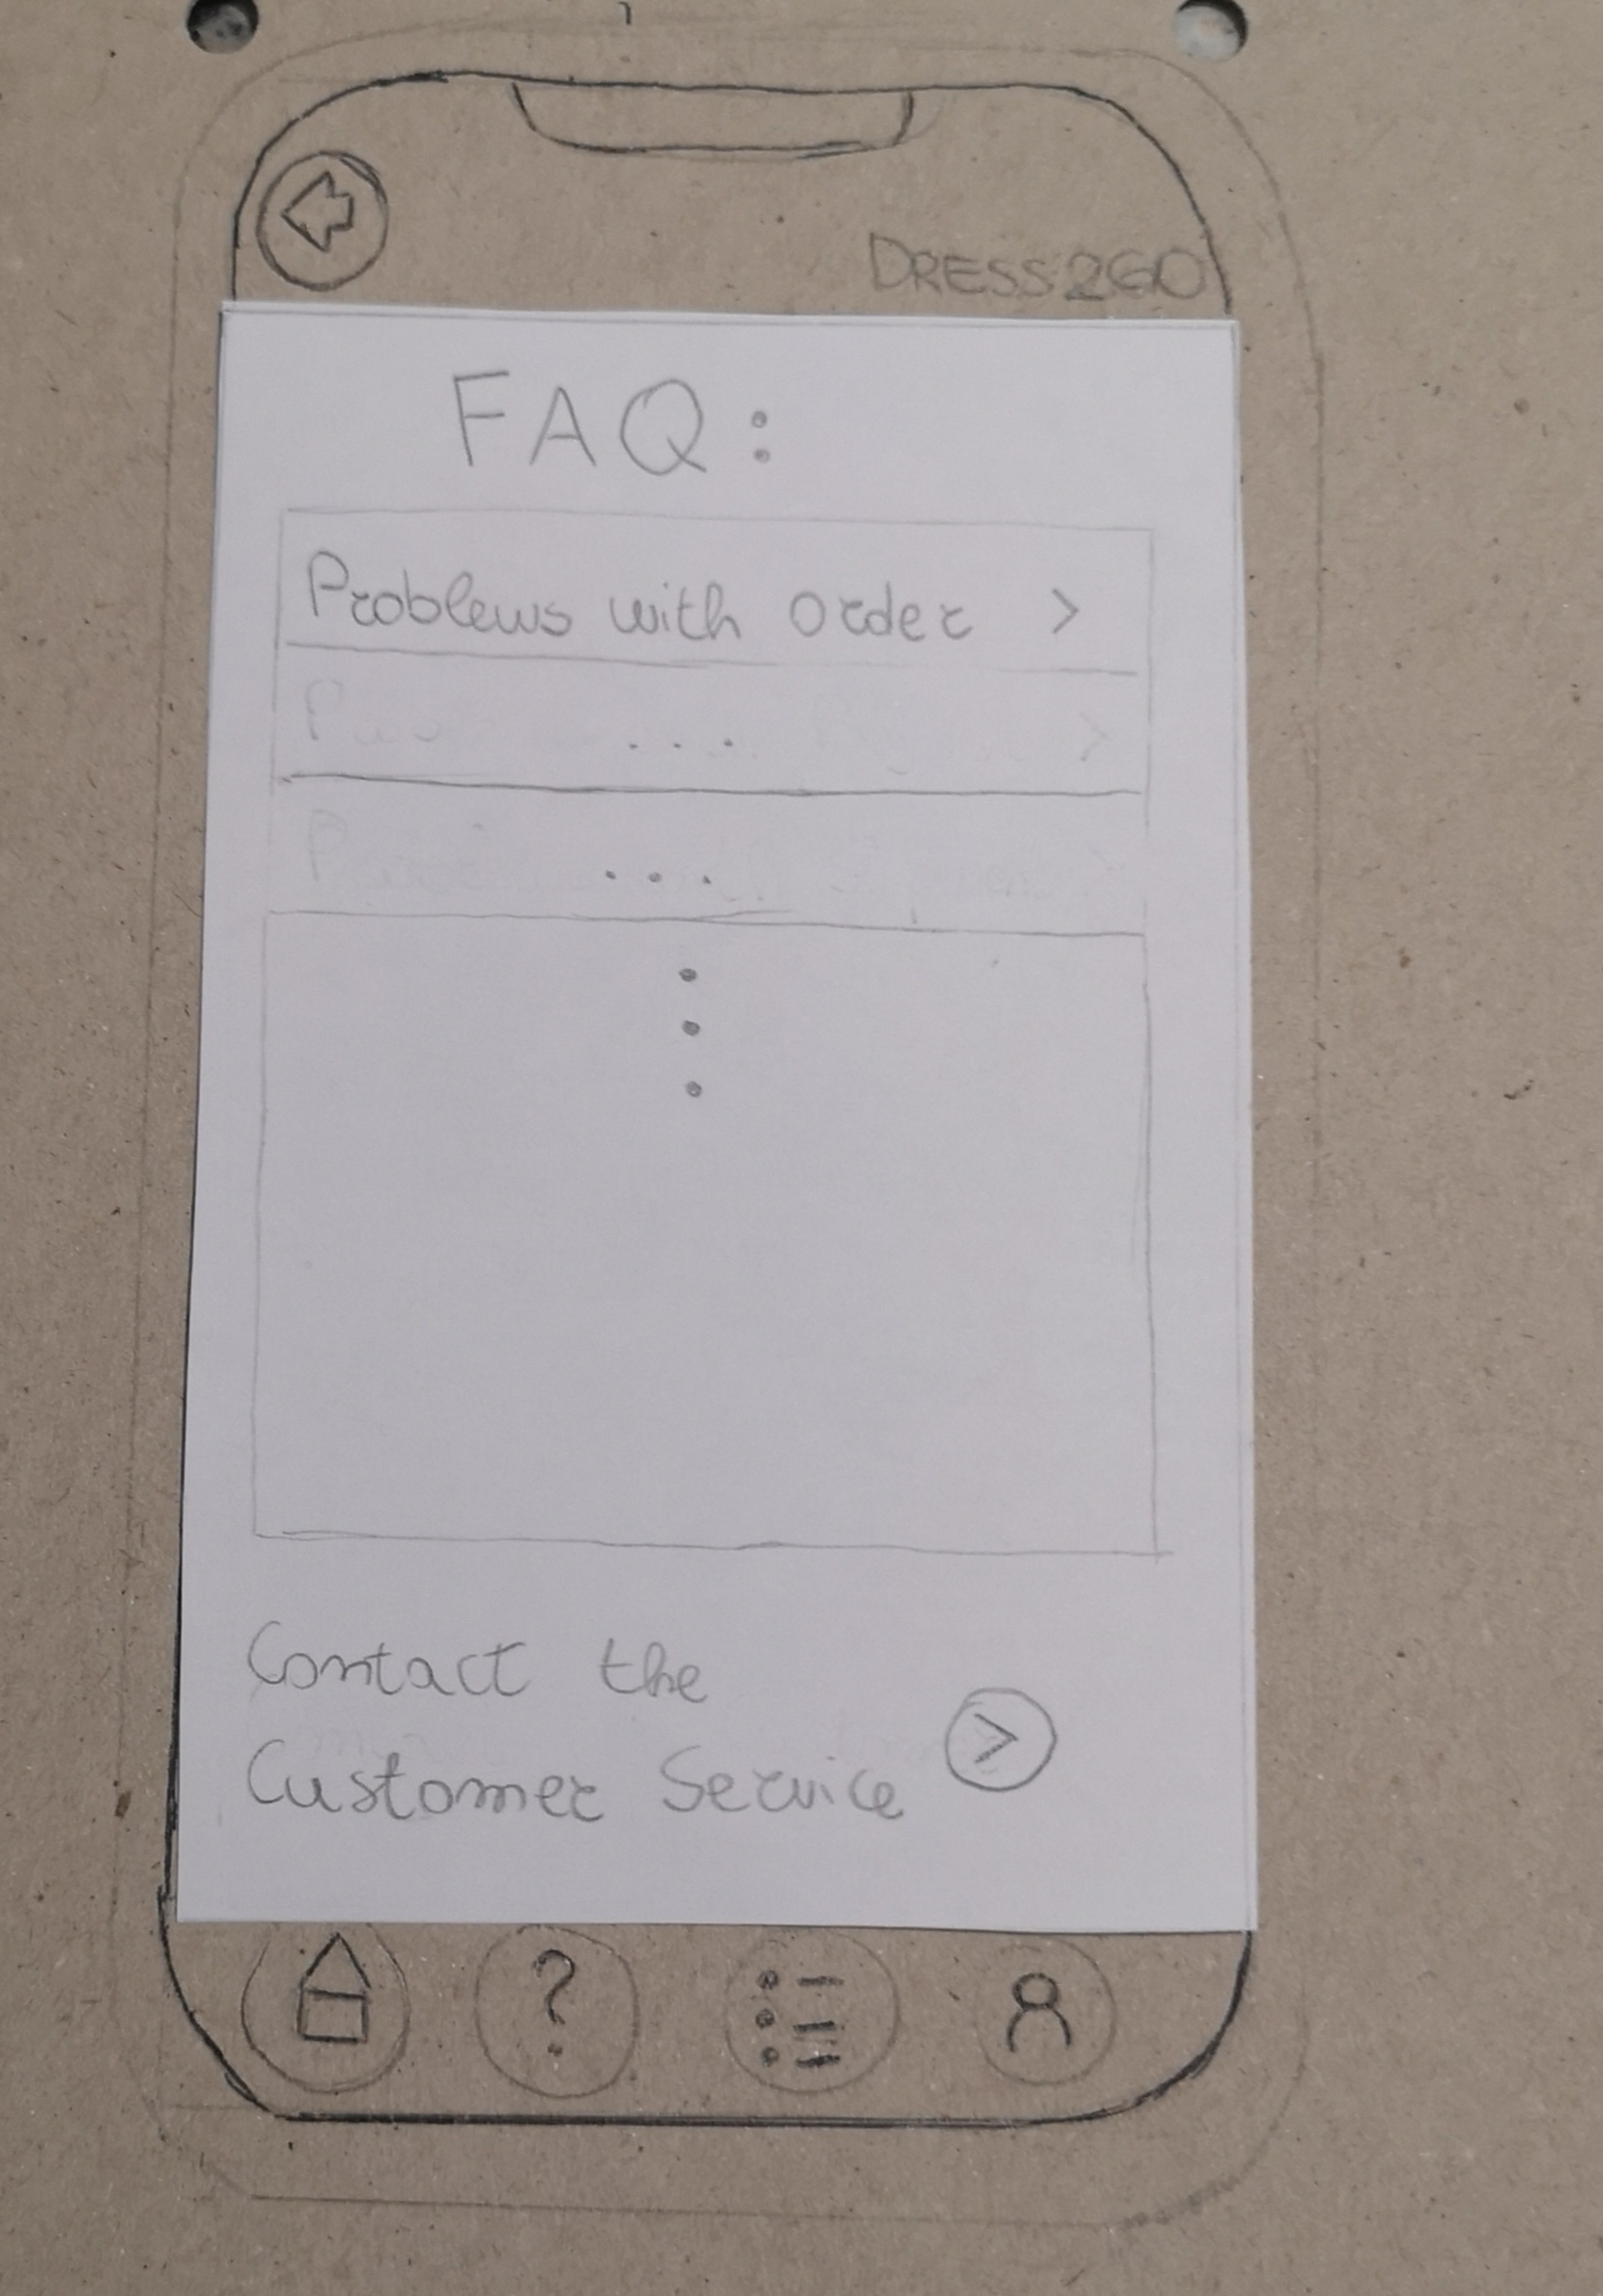 DRESS2GO
FAQ:
Problems with order >
...
...
Contact the
Customer Service >
?